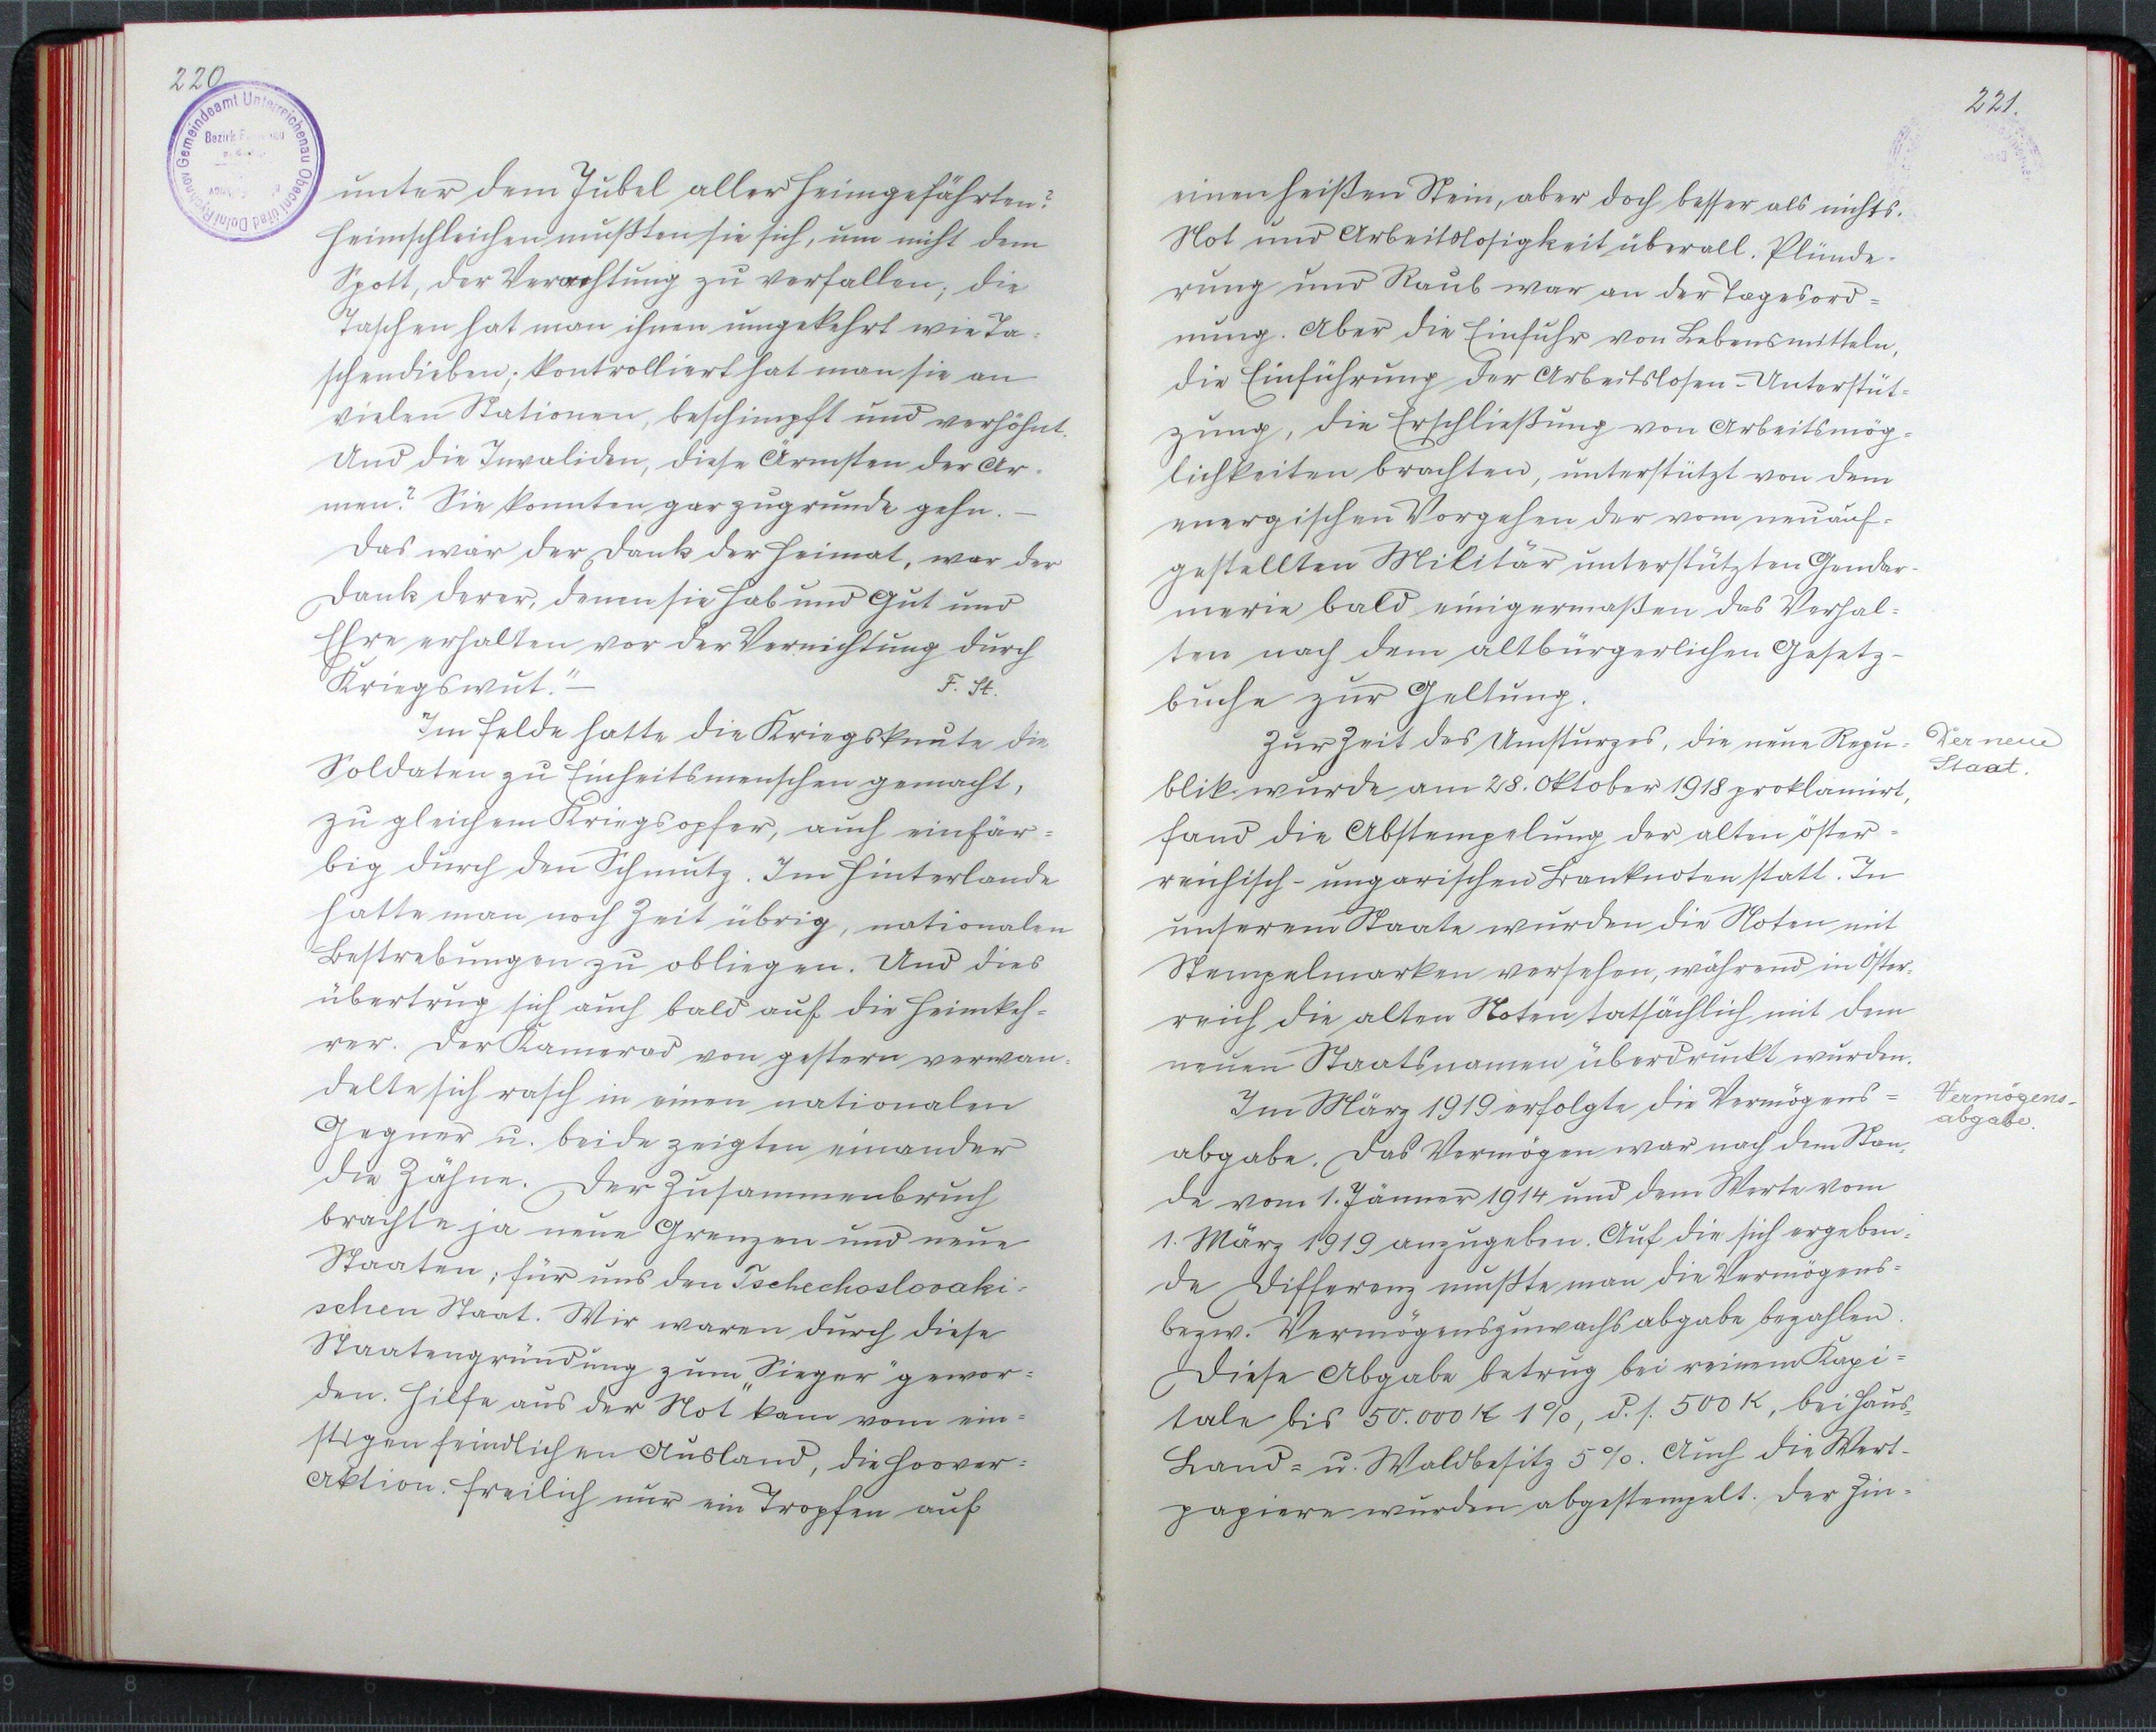 220
Gemeindeamt Unterreichenau
Obecní úřad Dolní Rychnov
Bezirk
unter dem Jubel aller Heimgefährten?
Heimschleichen mußten sie sich, um nicht dem
Spott, der Verachtung zu verfallen; die
Taschen hat man ihnen umgekehrt wie Ta-
schendieben; kontrolliert hat man sie an
vielen Stationen, beschimpft und verhöhnt.
Und die Invaliden, diese Ärmsten der Ar-
men? Sie konnten gar zugrunde gehn. —
Das war der Dank der Heimat, war der
Dank derer, denen sie Hab und Gut und
Ehre erhalten vor der Vernichtung durch
Kriegswut." — F. St.
Im Felde hatte die Kriegsknute die
Soldaten zu Einheitsmenschen gemacht,
zu gleichem Kriegsopfer, auch einfär=
big durch den Schmutz. Im Hinterlande
hatte man noch Zeit übrig, nationalen
Bestrebungen zu obliegen. Und dies
übertrug sich auch bald auf die Heimkeh=
rer. Der Kamerad von gestern verwan=
delte sich rasch in einen nationalen
Gegner u. beide zeigten einander
die Zähne. Der Zusammenbruch
brachte ja neue Grenzen und neue
Staaten; für uns den Tschechoslovaki-
schen Staat. Wir waren durch diese
Staatengründung zum „Sieger" gewor=
den. Hilfe aus der Not kam vom ein=
stigen feindlichen Ausland, die Hoover=
Aktion. Freilich nur ein Tropfen auf
221.
einen heißen Stein, aber doch besser als nichts.
Not und Arbeitslosigkeit überall. Plünde-
rung und Raub war an der Tagesord=
nung. Aber die Einfuhr von Lebensmitteln,
die Einführung der Arbeitslosen-Unterstüt=
zung, die Erschließung von Arbeitsmög=
lichkeiten brachten, unterstützt von dem
energischen Vorgehen der vom neuauf=
gestellten Militär unterstützten Gendar-
merie bald einigermaßen das Verhal=
ten nach dem altbürgerlichen Gesetz-
buche zur Geltung.
Zur Zeit des Umsturzes, die neue Repu=
Der neue
Staat.
blik wurde am 28. Oktober 1918 proklamirt,
fand die Abstempelung der alten öster=
reichisch-ungarischen Banknoten statt. In
unserem Staate wurden die Noten mit
Stempelmarken versehen, während in Öster=
reich die alten Noten tatsächlich mit dem
neuen Staatsnamen überdruckt wurden.
Im März 1919 erfolgte die Vermögens=
Vermögens-
abgabe.
abgabe. Das Vermögen war nach dem Stan=
de vom 1. Jänner 1914 und dem Werte vom
1. März 1919 anzugeben. Auf die sich ergeben=
de Differenz mußte man die Vermögens=
bezw. Vermögenszuwachsabgabe bezahlen.
Diese Abgabe betrug bei reinem Kapi=
tale bis 50.000 K 1%, d.s. 500 K, bei Haus=
Land= u. Waldbesitz 5%. Auch die Wert-
papiere wurden abgestempelt. Der Zin=